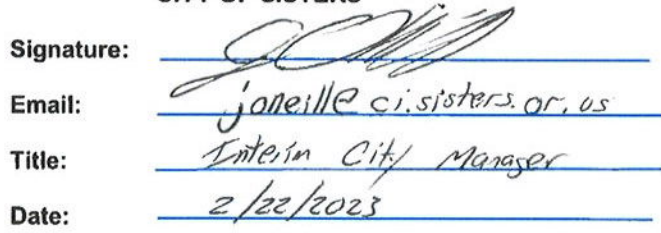 CITY OF SISTERS
Signature:
Email: joneill@ci.sisters.or.us
Title: Interim City Manager
Date: 2/22/2023